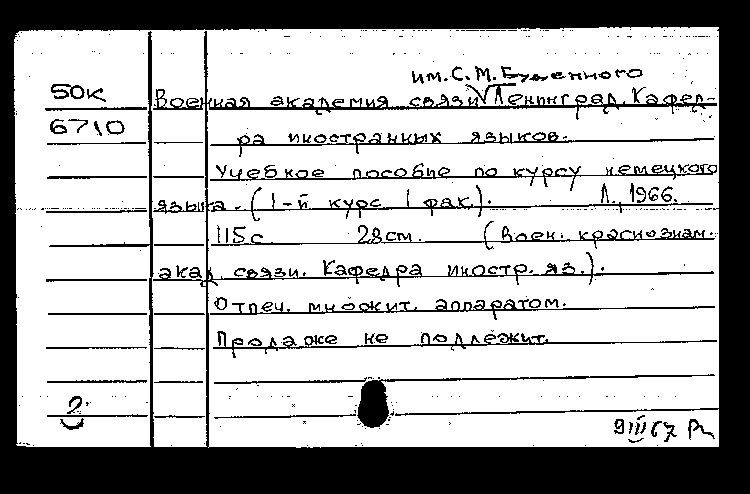 им. С. М. Буденного
50к Военная академия связи √ Ленинград. Кафед-
6710 ра иностранных языков.
Учебное пособие по курсу немецкого
языка. (1-й курс 1 фак). Л., 1966.
115 с. 28 см. (Воен. краснознам.
акад. связи. Кафедра иностр. яз.).
Отпеч. множит. аппаратом.
Продаже не подлежит.
2
9 III 67